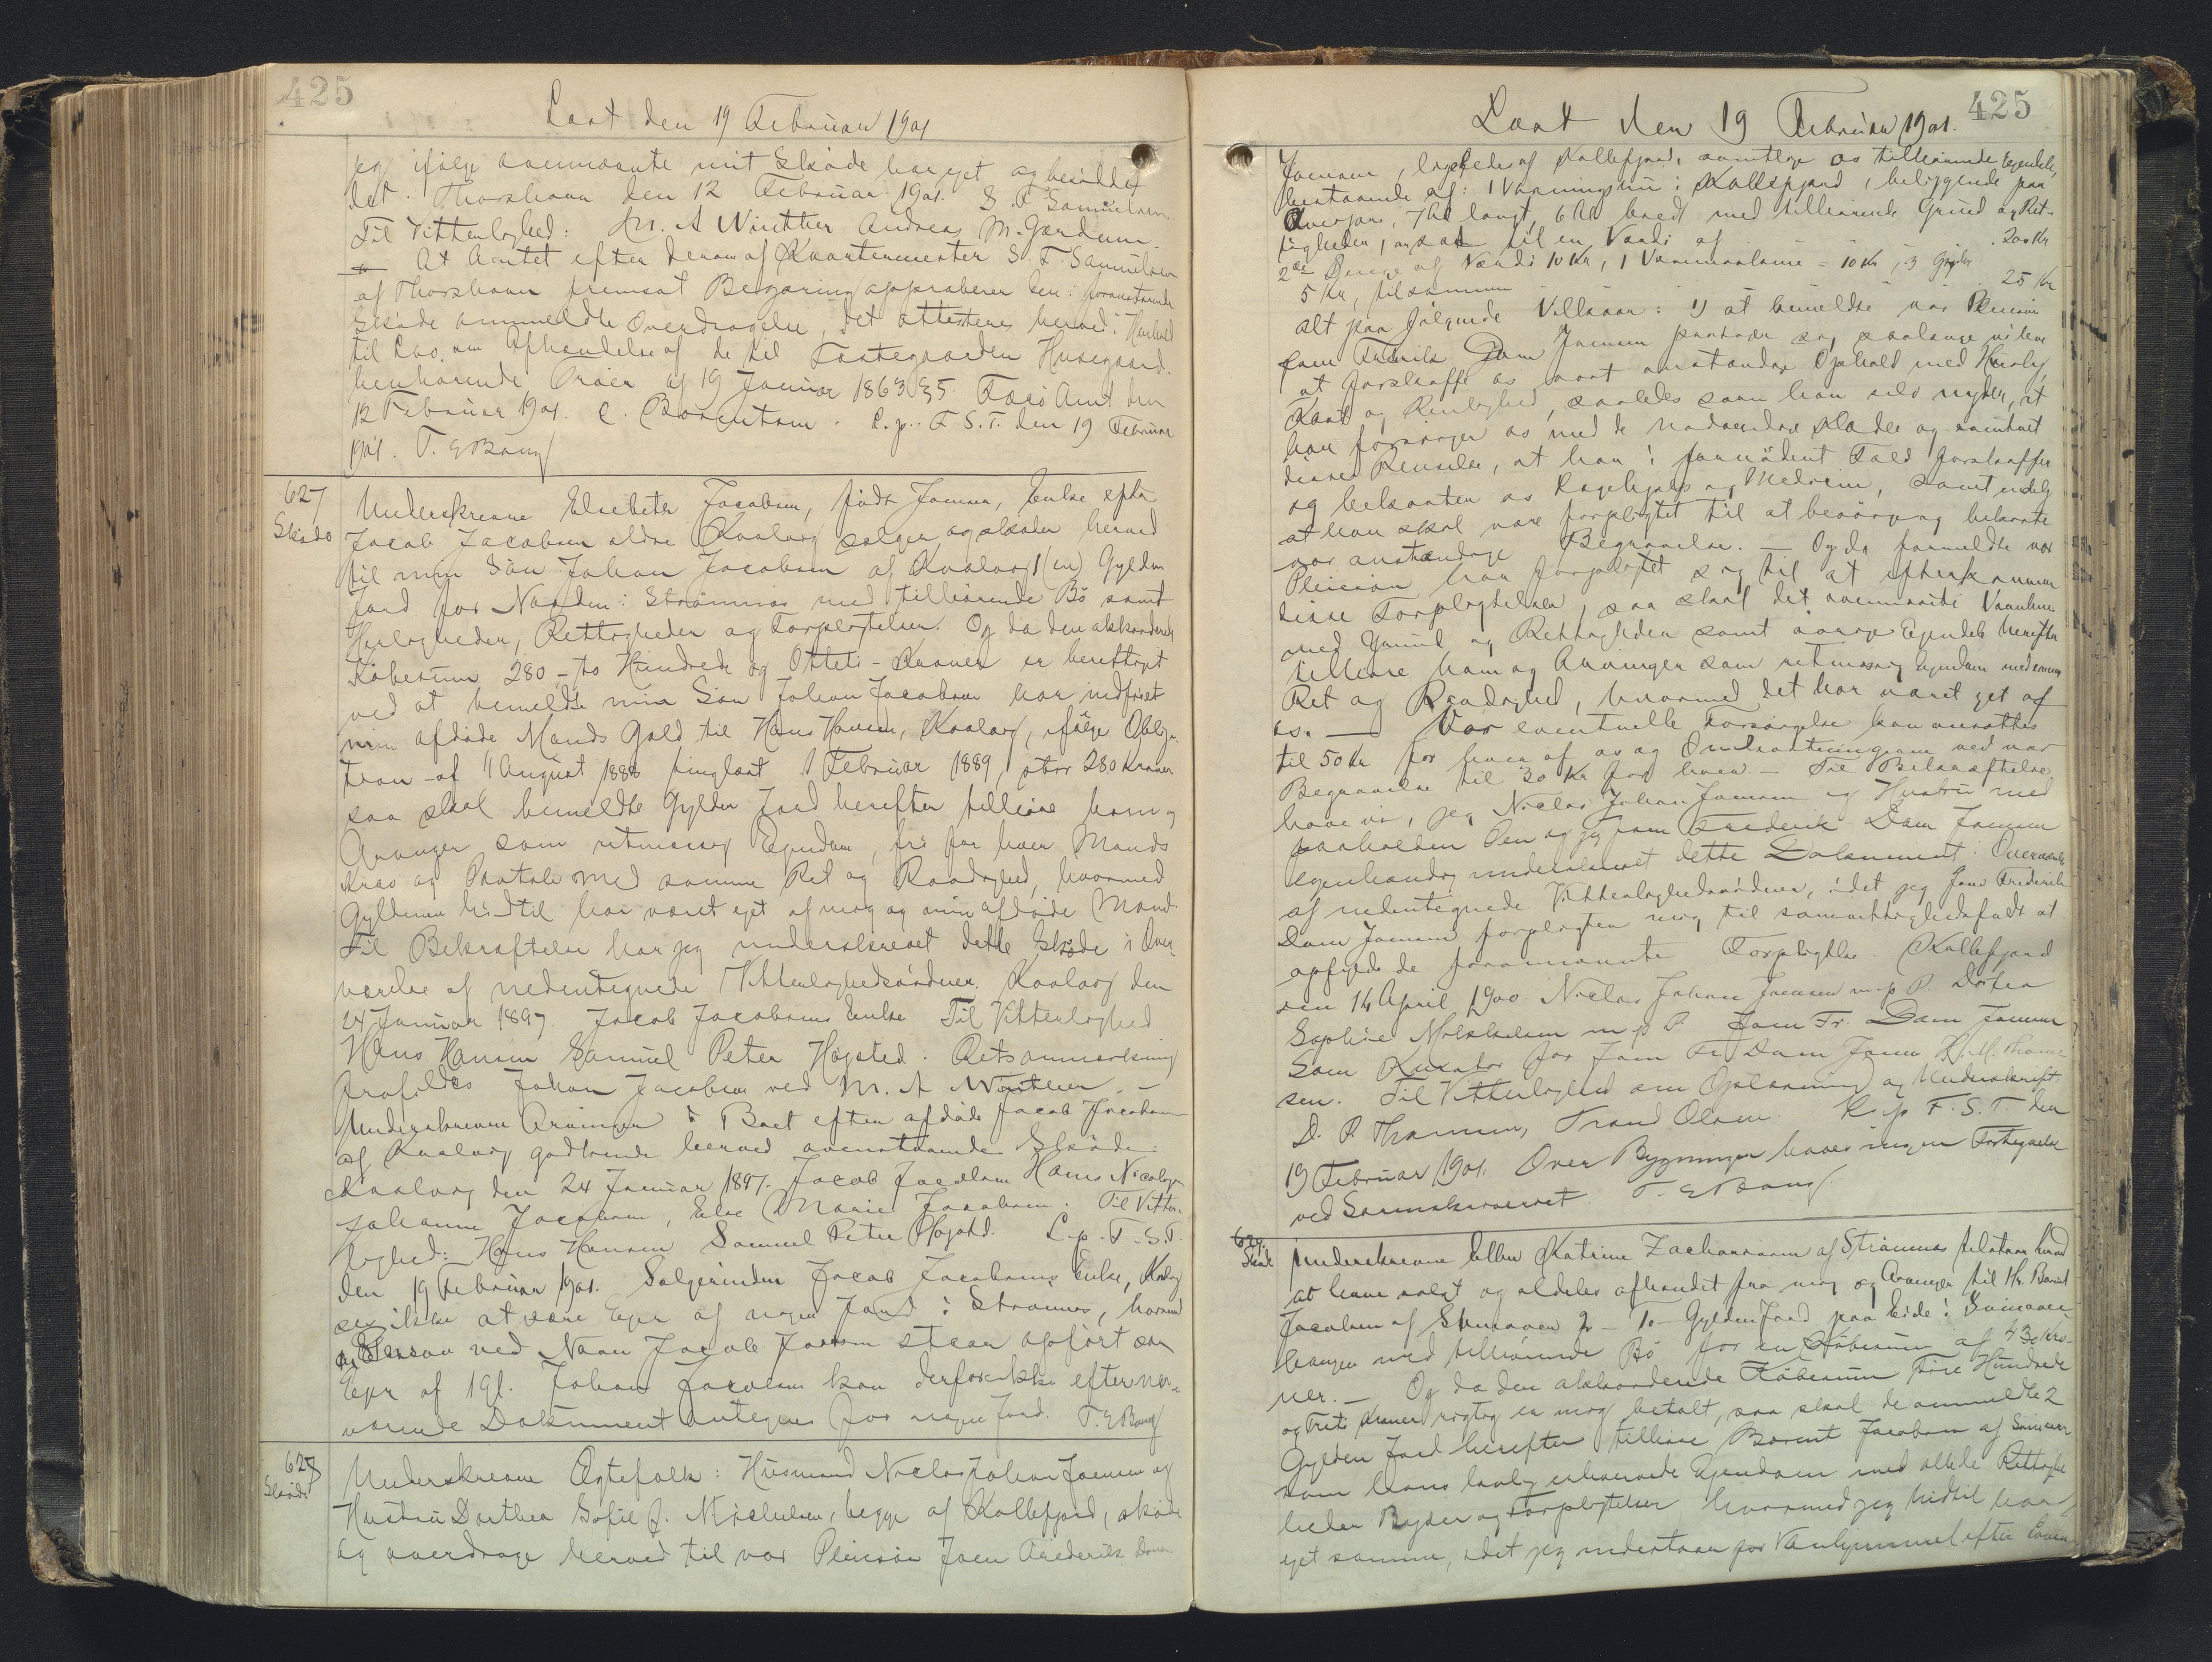 425
Læst den 19 Februar 1901
jeg ifølge ovennævnte mit Skøde har ejet og besiddet
det. Thorshavn den 12 Februar 1901. S. F. Samuelsen
Til Vitterlighed: M. A. Winther Andreas M. Gardum.
At Amtet efter derom af Kvartermester S. F. Samuelsen
af Thorshavn fremsat Begæring approberer den i foranstaaende
Skøde ommeldte Overdragelse, det attesteres herved i Henhold
til Lov om Afhændelse af de til Fæstegaarden Husegaard
henhørende Trøer af 19 Januar 1863 § 5. Færø Amt den
12 Februar 1901. C. Bærentsen. L. p. F. S. T. den 19 Februar
1901. T. E. Bang
627
Skøde
Underskrevne Elsebeth Jacobsen, født Joensen, Enke efter
Jacob Jacobsen ældre Kvalvig sælger og skøder herved
til min Søn Johan Jacobsen af Kvalvig 1 (en) Gylden
Jord for Norden i Strømnæs med tilhørende Bø samt
Herligheder, Rettigheder og Forpligtelser. Og da den akkorderede
Købesum 280,- to Hundrede og Otteti - Kroner er berigtiget
ved at bemeldte min Søn Johan Jacobsen har indfriet
min afdøde Mands Gæld til Hans Hansen, Kvalvig, ifølge Obliga-
tion af 11 August 1888 tinglæst 1 Februar 1889, stor 280 Kroner
saa skal bemeldte Gylden Jord herefter tilhøre ham og
Arvinger som retmæssig Ejendom, fri for hver Mands
Krav og Paatale med samme Ret og Raadighed, hvormed
Gyldenen hidtil har været ejet af mig og min afdøde Mand
Til Bekræftelse har jeg underskrevet dette Skøde i Over-
værelse af nedentegnede Vitterlighedsvidner. Kvalvig den
24 Januar 1897 Jacob Jacobsens Enke Til Vitterlighed
Hans Hansen Samuel Peter Højsted. Retsanmærkning
frafaldes Johan Jacobsen ved M. A. Winther. -
Underskrevne Arvinger i Boet efter afdøde Jacob Jacobsen
af Kvalvig godkende herved ovenstaaende Skøde.
Kvalvig den 24 Januar 1897. Jacob Jacobsen Hans Nicolaj
Johanne Jacobsen, Else Marie Jacobsen. Til Vitter-
lighed: Hans Hansen Samuel Peter Højsted. L. p. F. S. T.
den 19 Februar 1901. Sælgerinden Jacob Jacobsens Enke, Kvalvig
ses ikke at være Ejer af nogen Jord i Strømnæs, hvorimod
en Person ved Navn Jacob Joensen staar opført som
Ejer af 1 gl. Johan Jacobsen kan derfor ikke efter nær-
værende Dokument antegnes for nogen Jord. T. E. Bang
628
Skøde
Underskrevne Ægtefolk: Husmand Niclas Johan Joensen og
Hustru Dorthea Sofie f. Mikkelsen, begge af Kollefjord, skøde
og overdrage herved til vor Plejesøn Joen Frederik Dam
425
Læst den 19 Februar 1901.
Joensen, ligeledes af Kollefjord, samtlige os tilhørende Ejendele,
bestaaende af: 1 Vaaningshus i Kollefjord, beliggende paa
7 Al langt, 6 Al bredt med tilhørende Grund og Ret-
tigheder, ansat til en Værdi af 200 Kr
2de Senge af Værdi 10 Kr, 1 Varmeovn = 10 Kr, 3 Gryder
5 Kr, tilsammen 25 Kr
alt paa følgende Vilkaar: 1) at bemeldte vor Plejesøn
Joen Fredrik Dam Joensen paatager sig, saalænge vi leve
at forskaffe os vort anstændige Ophold med Husly,
Kost og Renlighed, saaledes som han selv nyder, at
han forsørger os med de nødvendige Klæder og samt
disses Renselse, at han i fornødent Fald forskaffer
og bekoster os Lægehjælp og Medicin, samt endelig
at han skal være forpligtet til at besørge og bekoste
vor anstændige Begravelse. - Og da formeldte vor
Plejesøn har forpligtet sig til at efterkomme
disse Forpligtelser, saa skal det ovennævnte Vaanhus
med Grund og Rettigheder samt øvrige Ejendele herefter
tilhøre ham og Arvinger som retmæssig Ejendom med samme
Ret og Raadighed, hvormed det har været ejet af
os. - Vor eventuelle Forsørgelse kan ansættes
til 50 Kr for hver af os og Omkostningerne ved vor
Begravelse til 30 Kr for hver. - Til Bekræftelse
have vi, jeg Niclas Johan Joensen og Hustru med
paaholden Pen og jeg Joen Frederik Dam Joensen
egenhændig underskrevet dette Dokument i Overværelse
af nedentegnede Vitterlighedsvidner, idet jeg Joen Frederik
Dam Joensen forpligter mig til samvittighedsfuldt at
opfylde de forannævnte Forpligtelser. Kollefjord
den 14 April 1900. Niclas Johan Joensen m. p. P. Dortea
Sophie Mikkelsen m. p. P. Joen Fr. Dam Joensen
Som Kurator for Joen Fr. Dam Joensen D. M. Thom-
sen. Til Vitterlighed om Oplæsning og Underskrift
D. P. Thomsen, Trond Olsen. L. p. F. S. T. den
19 Februar 1901. Over Bygninger haves ingen Fortegnelse
ved Sorenskriveriet. T. E. Bang
629
Skøde
Underskrevne Ellen Katrine Zachariasen af Strømnæs tilstaar herved
at have solgt og aldeles afhændet fra mig og Arvinger til Hr. Berint
Jacobsen af 2 - To - Gylden Jord paa Eide i
med tilhørende Bø for en Købesum af 430 Kro-
ner. - Og da den akkorderede Købesum Fire Hundrede
og Treti Kroner rigtig er mig betalt, saa skal de ommeldte 2
Gylden Jord herefter tilhøre Berint Jacobsen af
som hans lovlig erhvervede Ejendom med alle de Rettighe-
heder Byrder og Forpligtelser hvormed jeg hidtil har
ejet samme, idet jeg indestaar for Vanhjemmel efter Loven